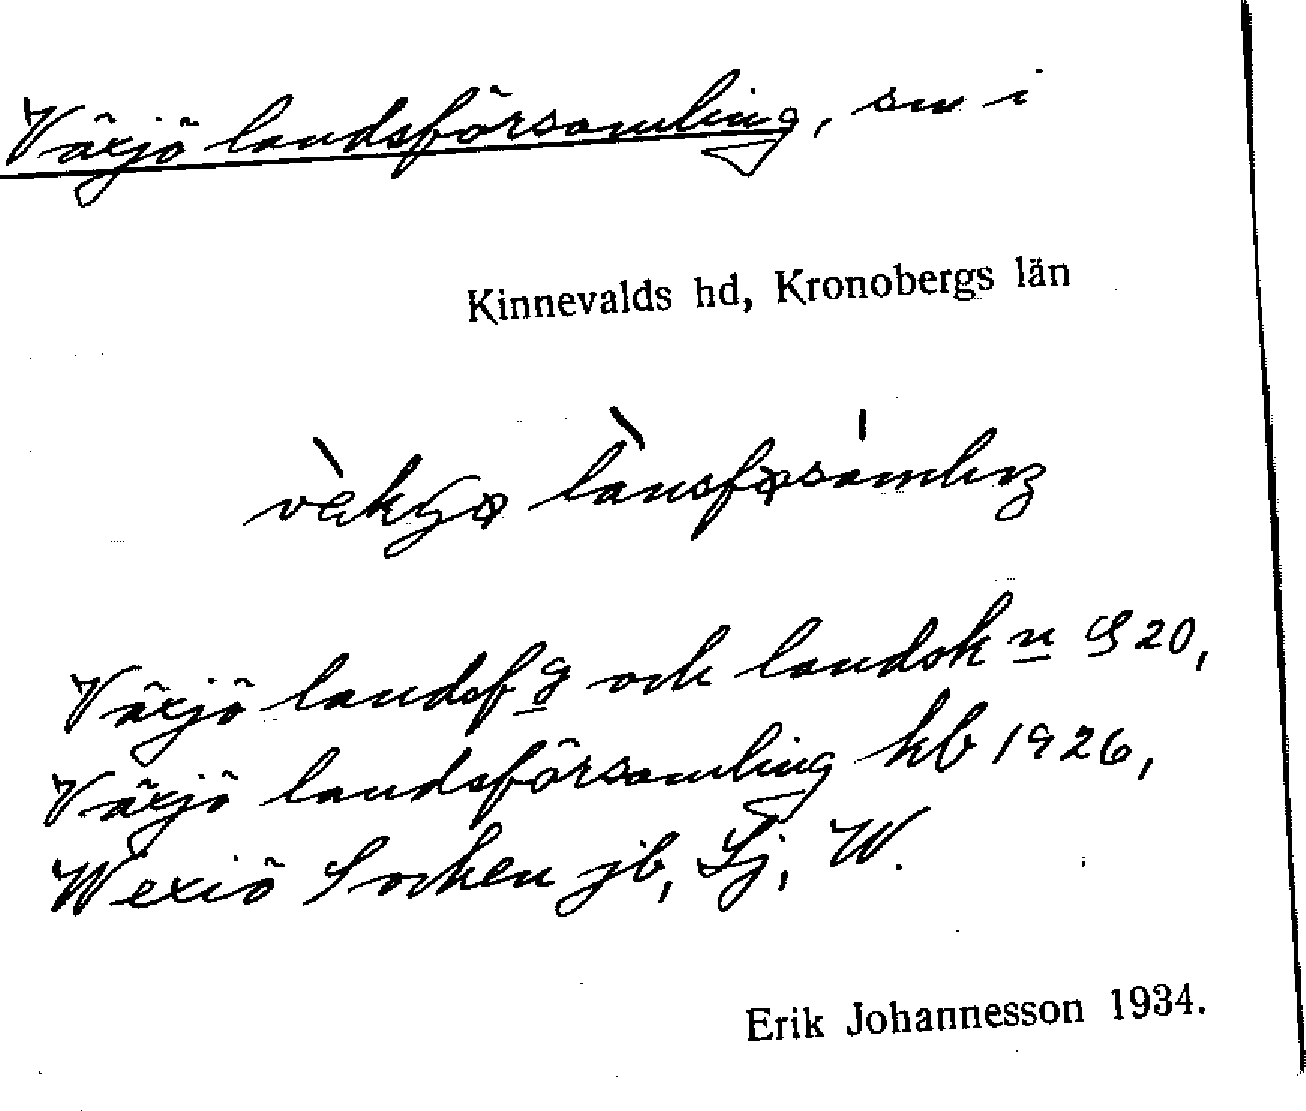 Växjö landsförsamling, sn i
Kinnevalds hd, Kronobergs län
Växjö landsf g och landsk n GS 20,
Växjö landsförsamling kb 1926,
Wexiö Socken jb, Lj, W.
Erik Johannesson 1934.